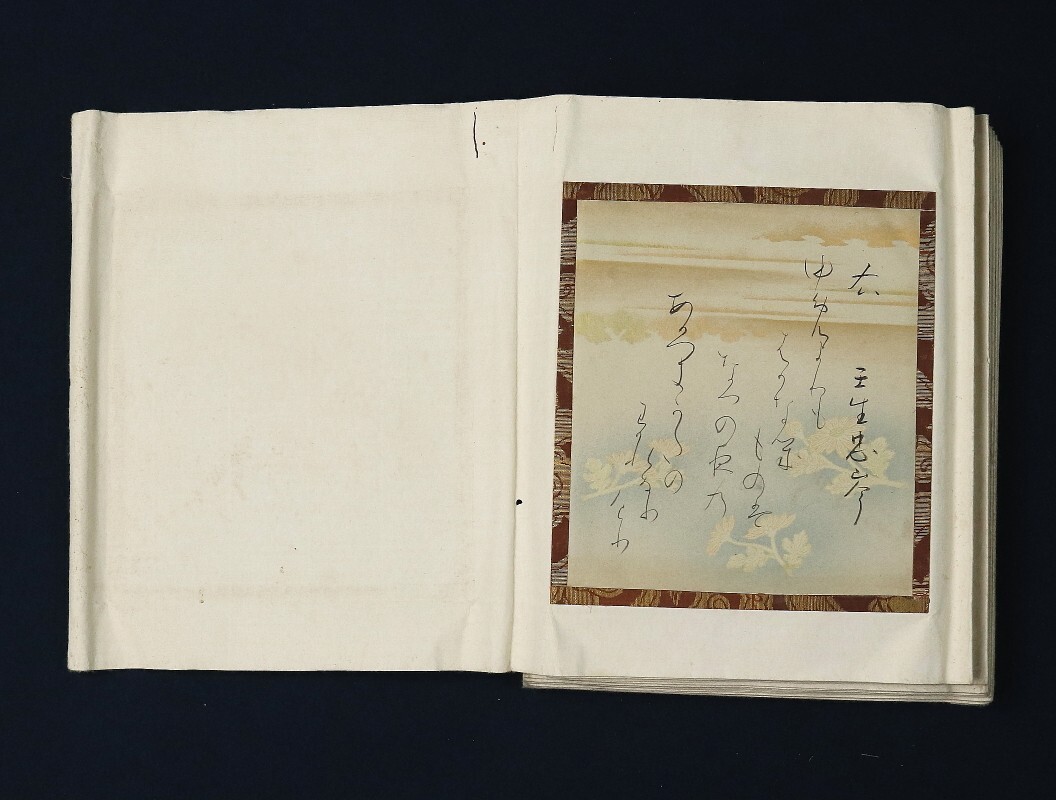 右　壬生忠岑
ゆめよりも
はかなき
ものは
なつの夜乃
あかつきかたの
わかれなり
けり